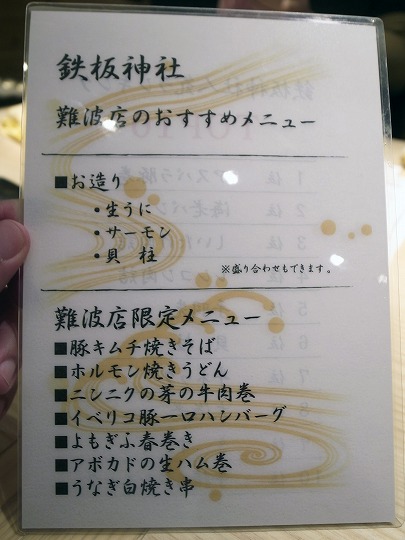 鉄板神社
難波店のおすすめメニュー
■お造り
・生うに
・サーモン
・貝　柱
※盛り合わせもできます。
難波店限定メニュー
■豚キムチ焼きそば
■ホルモン焼きうどん
■ニンニクの芽の牛肉巻
■イベリコ豚一口ハンバーグ
■よもぎふ春巻き
■アボカドの生ハム巻
■うなぎ白焼き串